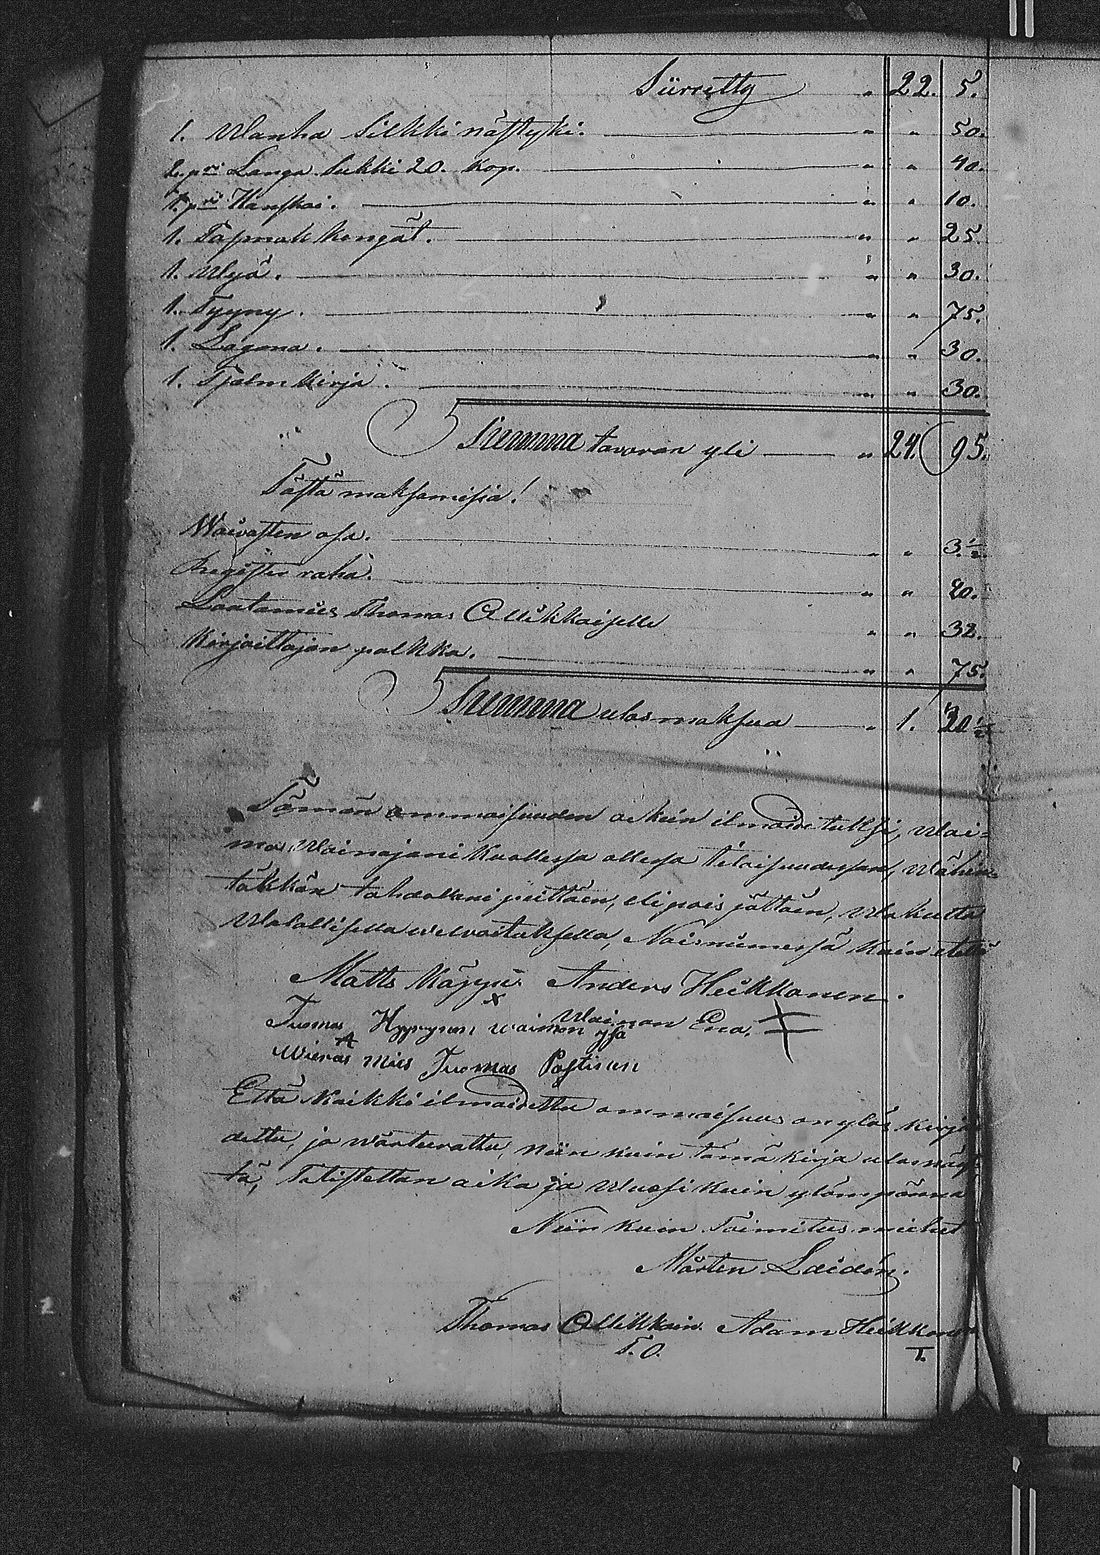 Siirretty " 22. 5.
1. Wanha Silkki nästyki. " " 50.
2. pri Langa Sukki 20. Kop. " " 40.
1. pri Hanskai. " " 10.
1. Tasmak kengät. " " 25.
1. Wyä. " " 30.
1. Tyyny. " " 75.
1. Lagana. " " 30.
1. Tsalm kirja. " " 30.
Summa tavaran yli " 24. 95.
Tästä maksamisia!
Waivasten osa. " " 3 1/2
Register raha. " " 20.
Lautamies Thomas Ollikkaiselle " " 32.
Kirjoittajan palkka. " " 75.
Summa ulos maksua " 1. 30 1/2
Tämän ommaisuuden oikein ilmoitetuksi, Wai-
ma Wainajani Kuollessa ollessa tilaisuudessan, Wähin-
täkkän tahdollani peittäen, eli pois jättäen, Wakutta
Walallisella welvoituksella, Näisnimessä kuin etellä
Matts Käppi Anders Heikkonen.
Tuomas Hyyrynen waimon Wainaan Eua.
yxä
Wieras Mies Tuomas Pastinen
Että Kaikki ilmoidettu ommaisuus on ylös kirjoi
dettu, ja wärteerattu, niin kuin tämä kirja ulosnäyt
tä, Totistettan aika ja Wuosi kuin ylempänna
Niin kuin Toimitus miehet
Mårten Laidin.
Thomas Ollikkain Adam Heikkonen
T. O.